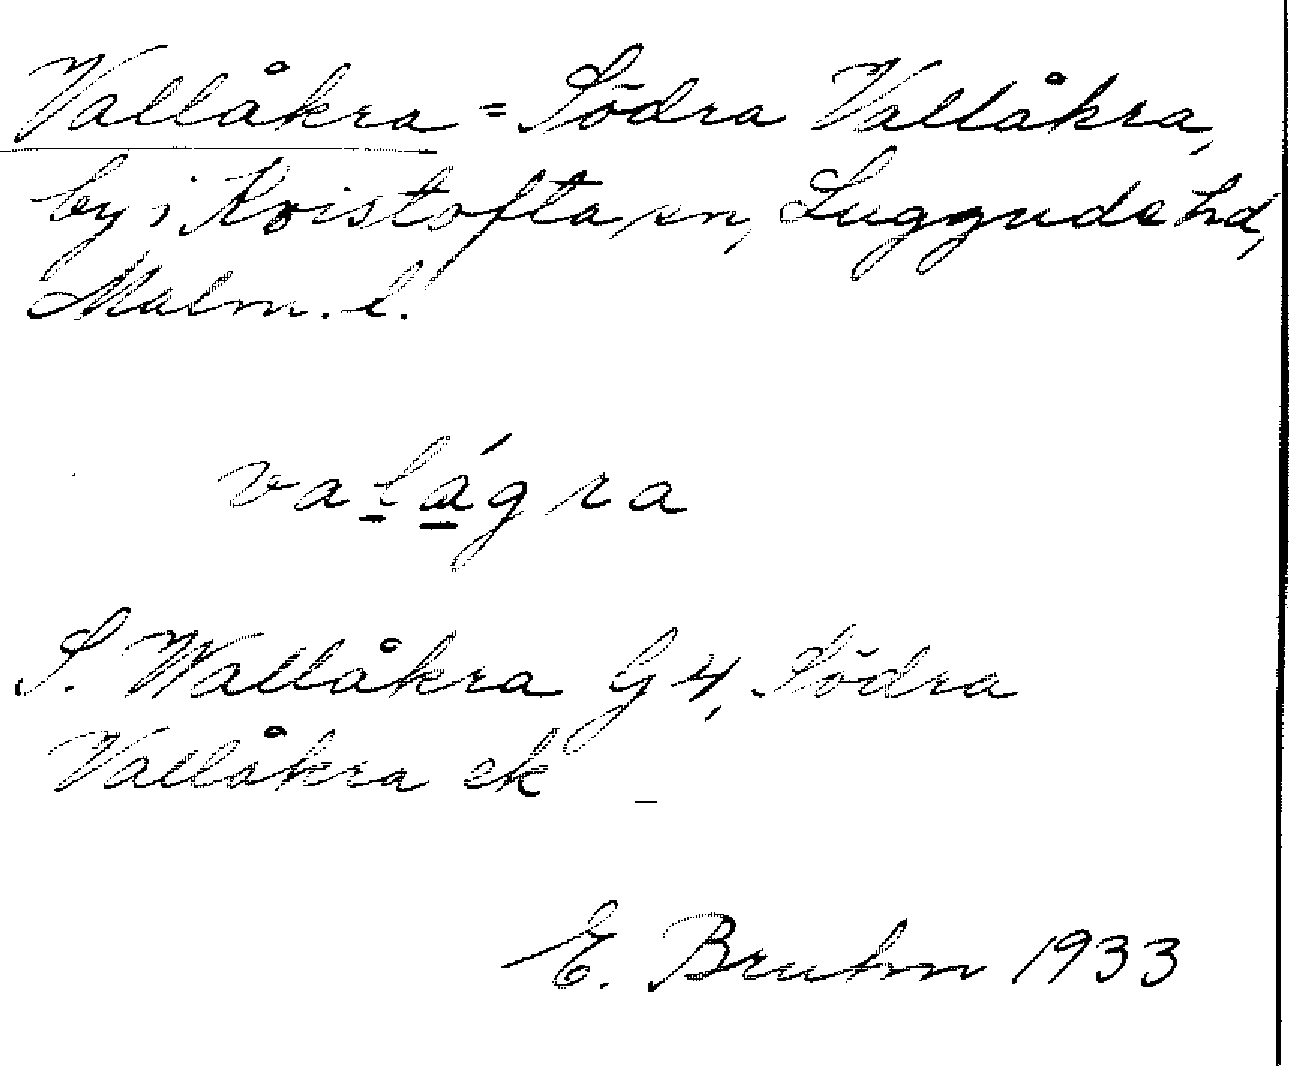 Vallåkra = Södra Vallåkra,
by i Kvistofta sn, Luggude hd,
Malm. l.
valágra
S. Wallåkra G 4, Södra
Vallåkra ek
E. Bruhn 1933